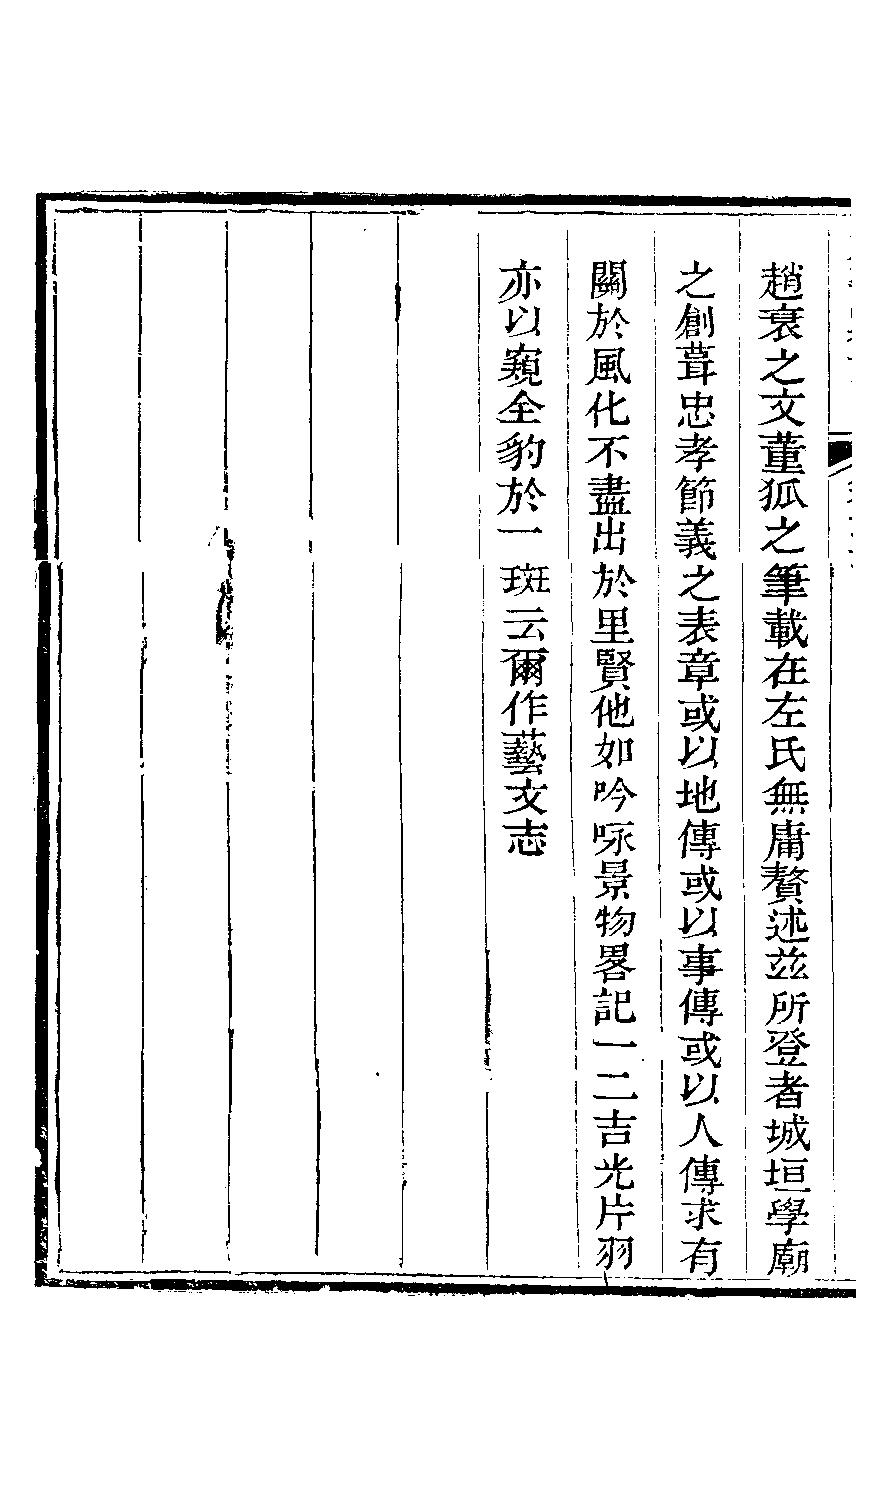 趙衰之文董狐之筆載在左氏無庸贅述茲所登者城垣學廟
之創葺忠孝節義之表章或以地傳或以事傳或以人傳求有
關於風化不盡出於里賢他如吟咏景物畧記一二吉光片羽
亦以窺全豹於一斑云爾作藝文志